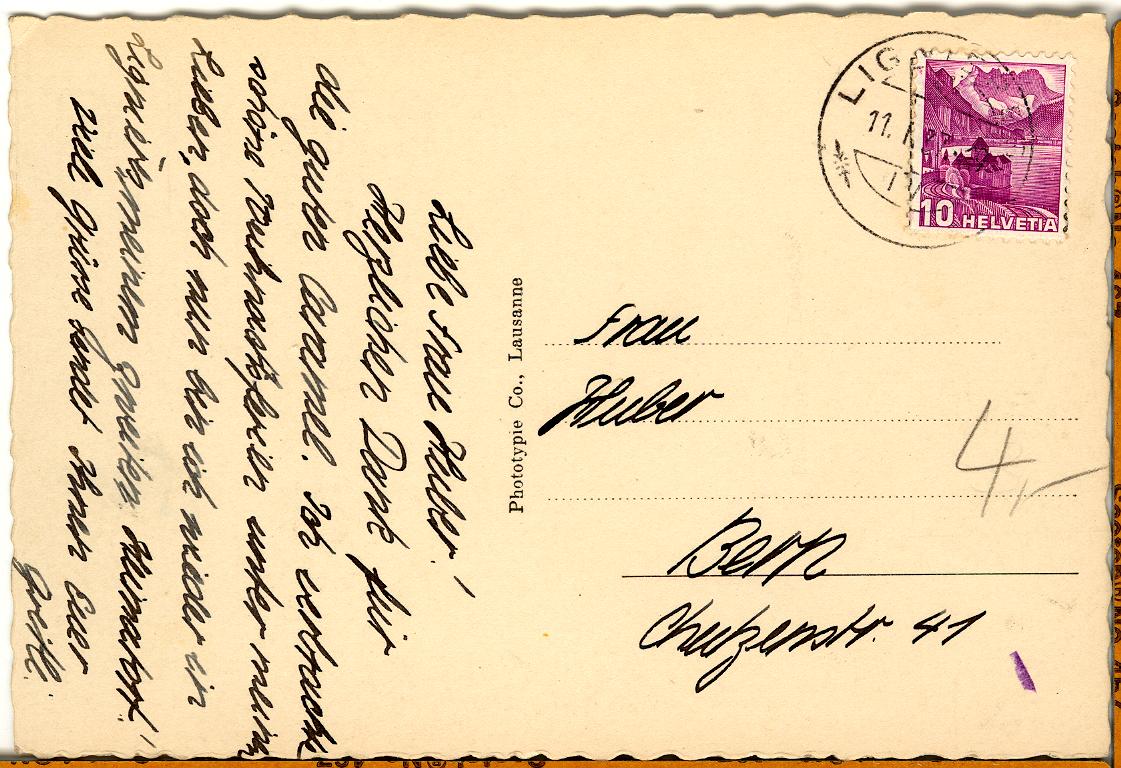 Liebe Frau Huber!
Herzlichen Dank für
die guten Caramel. Ich verbrachte
schöne Weihnachtsferien unter meinen
Lieben, doch nun bin ich wieder in
Lignières, meiner zweiten Heimat!
Viele Grüsse sendet Ihnen Euer
Phototypie Co., Lausanne
Frau
Huber
Bern
Chutzenstr. 41
4,-
11. I.
10 HELVETIA